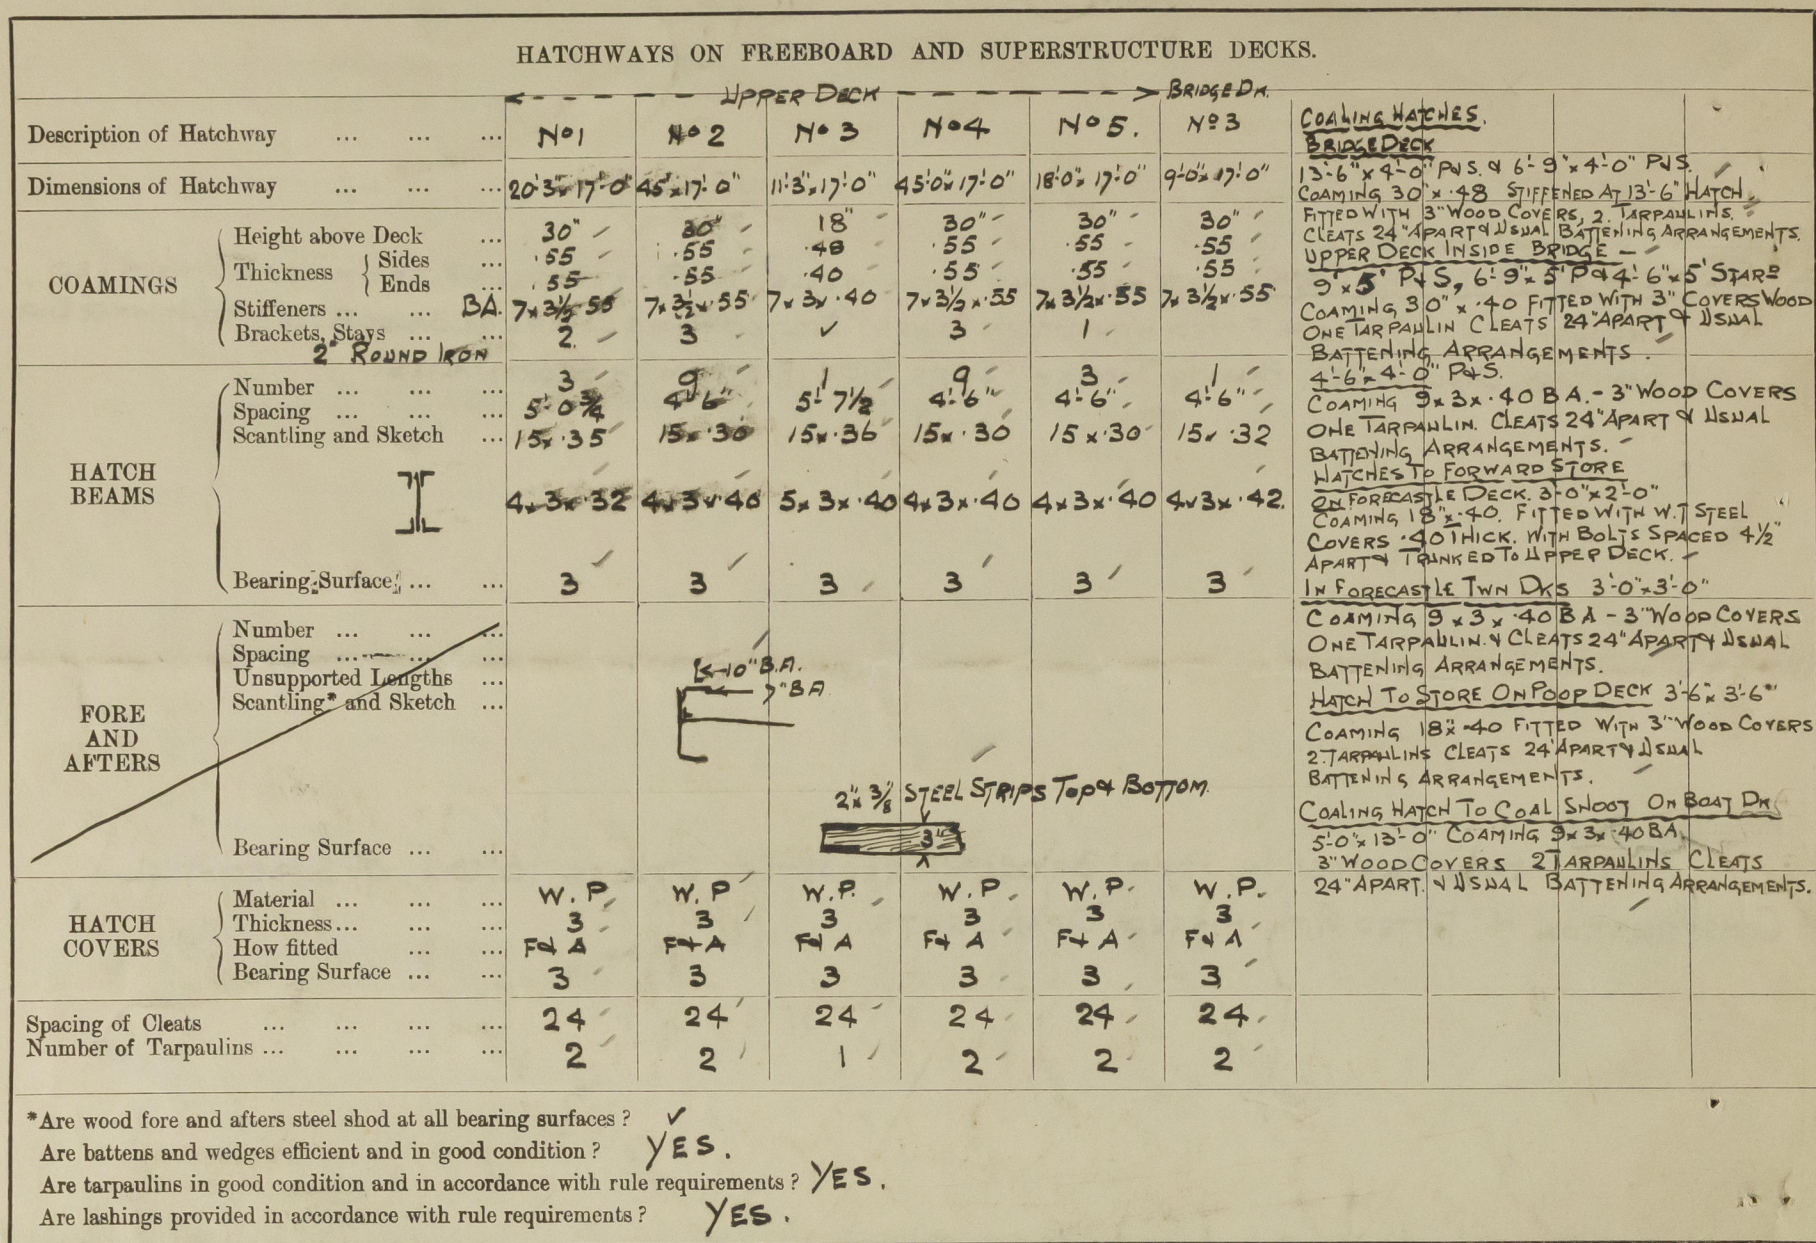 HATCHWAYS ON FREEBOARD AND SUPERSTRUCTURE DECKS.
UPPER DECK BRIDGE DK.
Description of Hatchway ... ... ... No 1 No 2 No 3 No 4 No 5. No 3
Dimensions of Hatchway ... ... ... 20'-3"x17'-0" 45'x17'-0" 11'-3"x17'-0" 45'-0"x17'-0" 18'-0"x17'-0" 9'-0"x17'-0"
COAMINGS
Height above Deck ... 30" 30" 18" 30" 30" 30"
Thickness
Sides ... .55 .55 .48 .55 .55 .55
Ends ... .55 .55 .40 .55 .55 .55
Stiffeners ... ... BA. 7x3½.55 7x3½x.55 7x3x.40 7x3½x.55 7x3½x.55 7x3½x.55
Brackets, Stays ... ... 2 3 ✓ 3 1
2" ROUND IRON
HATCH BEAMS
Number ... ... ... 3 9 1 9 3 1
Spacing ... ... ... 5'-0¾ 4'-6" 5'-7½ 4'-6" 4'-6" 4'-6"
Scantling and Sketch ... 15x.35 15x.30 15x.36 15x.30 15x.30 15x.32
4x3x.32 4x3x.40 5x3x.40 4x3x.40 4x3x.40 4x3x.42.
Bearing Surface ... ... 3 3 3 3 3 3
FORE AND AFTERS
Number ... ... ...
Spacing ... ... ...
Unsupported Lengths ...
Scantling* and Sketch ...
10" B.A.
7" BA
2"x3/8 STEEL STRIPS TOP & BOTTOM.
3"
Bearing Surface ... ...
HATCH COVERS
Material ... ... ... W.P W.P W.P. W.P W.P. W.P.
Thickness... ... ... 3 3 3 3 3 3
How fitted ... ... F&A F&A F&A F&A F&A F&A
Bearing Surface ... ... 3 3 3 3 3 3
Spacing of Cleats ... ... ... ... 24 24 24 24 24 24
Number of Tarpaulins ... ... ... ... 2 2 1 2 2 2
COALING HATCHES.
BRIDGE DECK
13'-6"x4'-0" P&S. & 6'-9"x4'-0" P&S.
COAMING 30"x.48 STIFFENED AT 13'-6" HATCH.
FITTED WITH 3" WOOD COVERS, 2. TARPAULINS.
CLEATS 24" APART & USUAL BATTENING ARRANGEMENTS.
UPPER DECK INSIDE BRIDGE —
9'x5' P&S, 6'-9"x5' P & 4'-6"x5' STARD
COAMING 30"x.40 FITTED WITH 3" COVERS WOOD
ONE TARPAULIN CLEATS 24" APART & USUAL
BATTENING ARRANGEMENTS.
4'-6"x4'-0" P&S.
COAMING 9x3x.40 BA. - 3" WOOD COVERS
ONE TARPAULIN. CLEATS 24" APART & USUAL
BATTENING ARRANGEMENTS.
HATCHES TO FORWARD STORE
ON FORECASTLE DECK. 3'-0"x2'-0"
COAMING 18"x.40. FITTED WITH W.T STEEL
COVERS .40 THICK. WITH BOLTS SPACED 4½"
APART & TRUNKED TO UPPER DECK.
IN FORECASTLE TWN DKS 3'-0"x3'-0"
COAMING 9x3x.40 BA - 3" WOOD COVERS
ONE TARPAULIN. & CLEATS 24" APART & USUAL
BATTENING ARRANGEMENTS.
HATCH TO STORE ON POOP DECK 3'-6"x3'-6"
COAMING 18"x.40 FITTED WITH 3" WOOD COVERS
2 TARPAULINS CLEATS 24" APART & USUAL
BATTENING ARRANGEMENTS.
COALING HATCH TO COAL SHOOT ON BOAT DK
5'-0"x13'-0" COAMING 9x3x.40 BA.
3" WOOD COVERS 2 TARPAULINS CLEATS
24" APART. & USUAL BATTENING ARRANGEMENTS.
*Are wood fore and afters steel shod at all bearing surfaces? ✓
Are battens and wedges efficient and in good condition? YES.
Are tarpaulins in good condition and in accordance with rule requirements? YES.
Are lashings provided in accordance with rule requirements? YES.